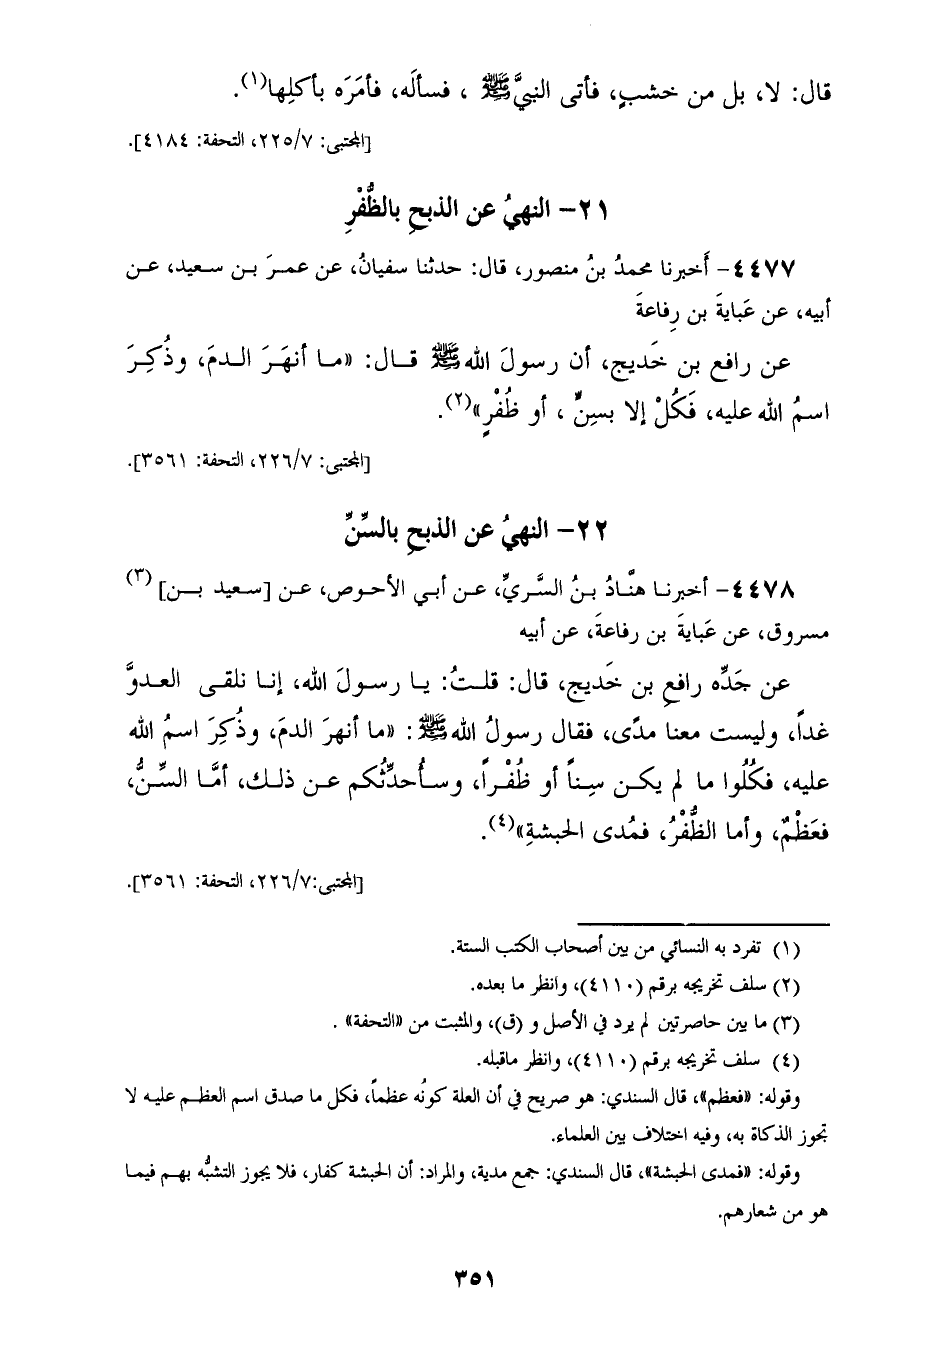 قال: لا، بل من خشبٍ، فأتى النبيَّ ﷺ ، فسألَه، فأمَرَه بأكلِها(١).
[المجتبى: ٢٢٥/٧، التحفة: ٤١٨٤].
٢١- النهيُ عن الذبحِ بالظُّفْرِ
٤٤٧٧- أَخبرنا محمدُ بنُ منصور، قال: حدثنا سفيانُ، عن عمرَ بن سعيد، عن
أبيه، عن عَبايةَ بن رِفاعةَ
عن رافع بن خَديج، أن رسولَ الله ﷺ قال: «ما أنهَرَ الدمَ، وذُكِرَ
اسمُ الله عليه، فَكُلْ إلا بسِنٍّ ، أو ظُفْرٍ»(٢).
[المجتبى: ٢٢٦/٧، التحفة: ٣٥٦١].
٢٢- النهيُ عن الذبحِ بالسِّنِّ
٤٤٧٨- أخبرنا هنَّادُ بنُ السَّريِّ، عن أبي الأحوص، عن [سعيد بن] (٣)
مسروق، عن عَبايةَ بن رفاعةَ، عن أبيه
عن جَدِّه رافعِ بن خَديج، قال: قلتُ: يا رسولَ الله، إنا نلقى العدوَّ
غداً، وليست معنا مدًى، فقال رسولُ الله ﷺ: «ما أنهرَ الدمَ، وذُكِرَ اسمُ الله
عليه، فكُلُوا ما لم يكن سِناً أو ظُفْراً، وسأُحدِّثُكم عن ذلك، أمَّا السِّنُّ،
فعَظْمٌ، وأما الظُّفْرُ، فمُدى الحبشةِ»(٤).
[المجتبى:٢٢٦/٧، التحفة: ٣٥٦١].
(١) تفرد به النسائي من بين أصحاب الكتب الستة.
(٢) سلف تخريجه برقم (٤١١٠)، وانظر ما بعده.
(٣) ما بين حاصرتين لم يرد في الأصل و (ق)، والمثبت من «التحفة» .
(٤) سلف تخريجه برقم (٤١١٠)، وانظر ماقبله.
وقوله: «فعظم»، قال السندي: هو صريح في أن العلة كونُه عظماً، فكل ما صدق اسم العظم عليه لا
تجوز الذكاة به، وفيه اختلاف بين العلماء.
وقوله: «فمدى الحبشة»، قال السندي: جمع مدية، والمراد: أن الحبشة كفار، فلا يجوز التشبُّه بهم فيما
هو من شعارهم.
٣٥١